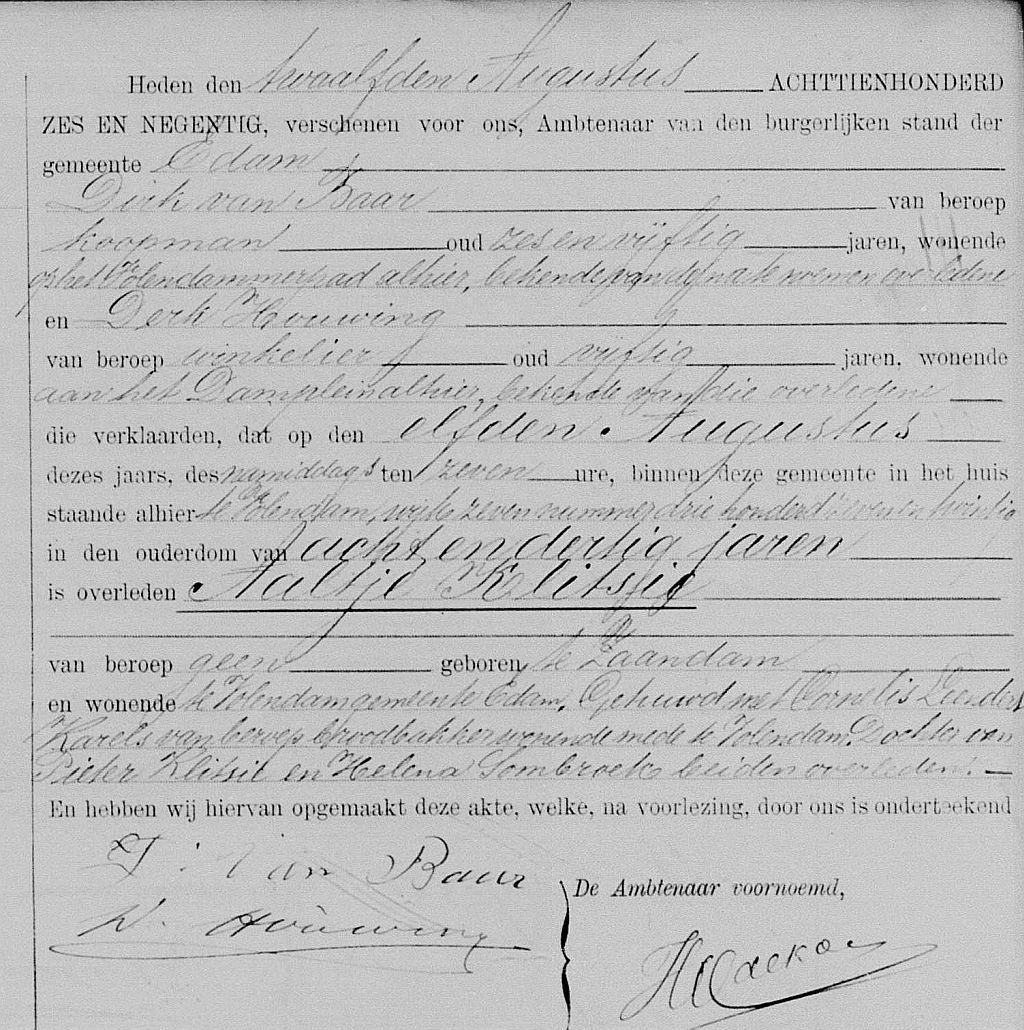 Heden den twaalfden Augustus ACHTTIENHONDERD
ZES EN NEGENTIG, verschenen voor ons, Ambtenaar van den burgerlijken stand der
gemeente Edam
Dirk van Baar van beroep
koopman oud zes en vijftig jaren, wonende
op het Volendammerpad alhier, bekende van de na te noemen overledene
en Derk Houwing
van beroep winkelier oud vijftig jaren, wonende
aan het Damplein alhier, bekende van die overledene
die verklaarden, dat op den elfden Augustus
dezes jaars, des namiddags ten zeven ure, binnen deze gemeente in het huis
staande alhier te Volendam, wijk zeven nummer drie honderd zeven en twintig
in den ouderdom van acht en dertig jaren
is overleden Aaltje Klitsie
van beroep geen geboren te Zaandam
en wonende te Volendam gemeente Edam, Gehuwd met Cornelis Leendert
Karels van beroep broodbakker wonende mede te Volendam. Dochter van
Pieter Klitsie en Helena Sombroek beiden overleden.
En hebben wij hiervan opgemaakt deze akte, welke, na voorlezing, door ons is onderteekend
Van Baar
De Ambtenaar voornoemd,
D. Houwing